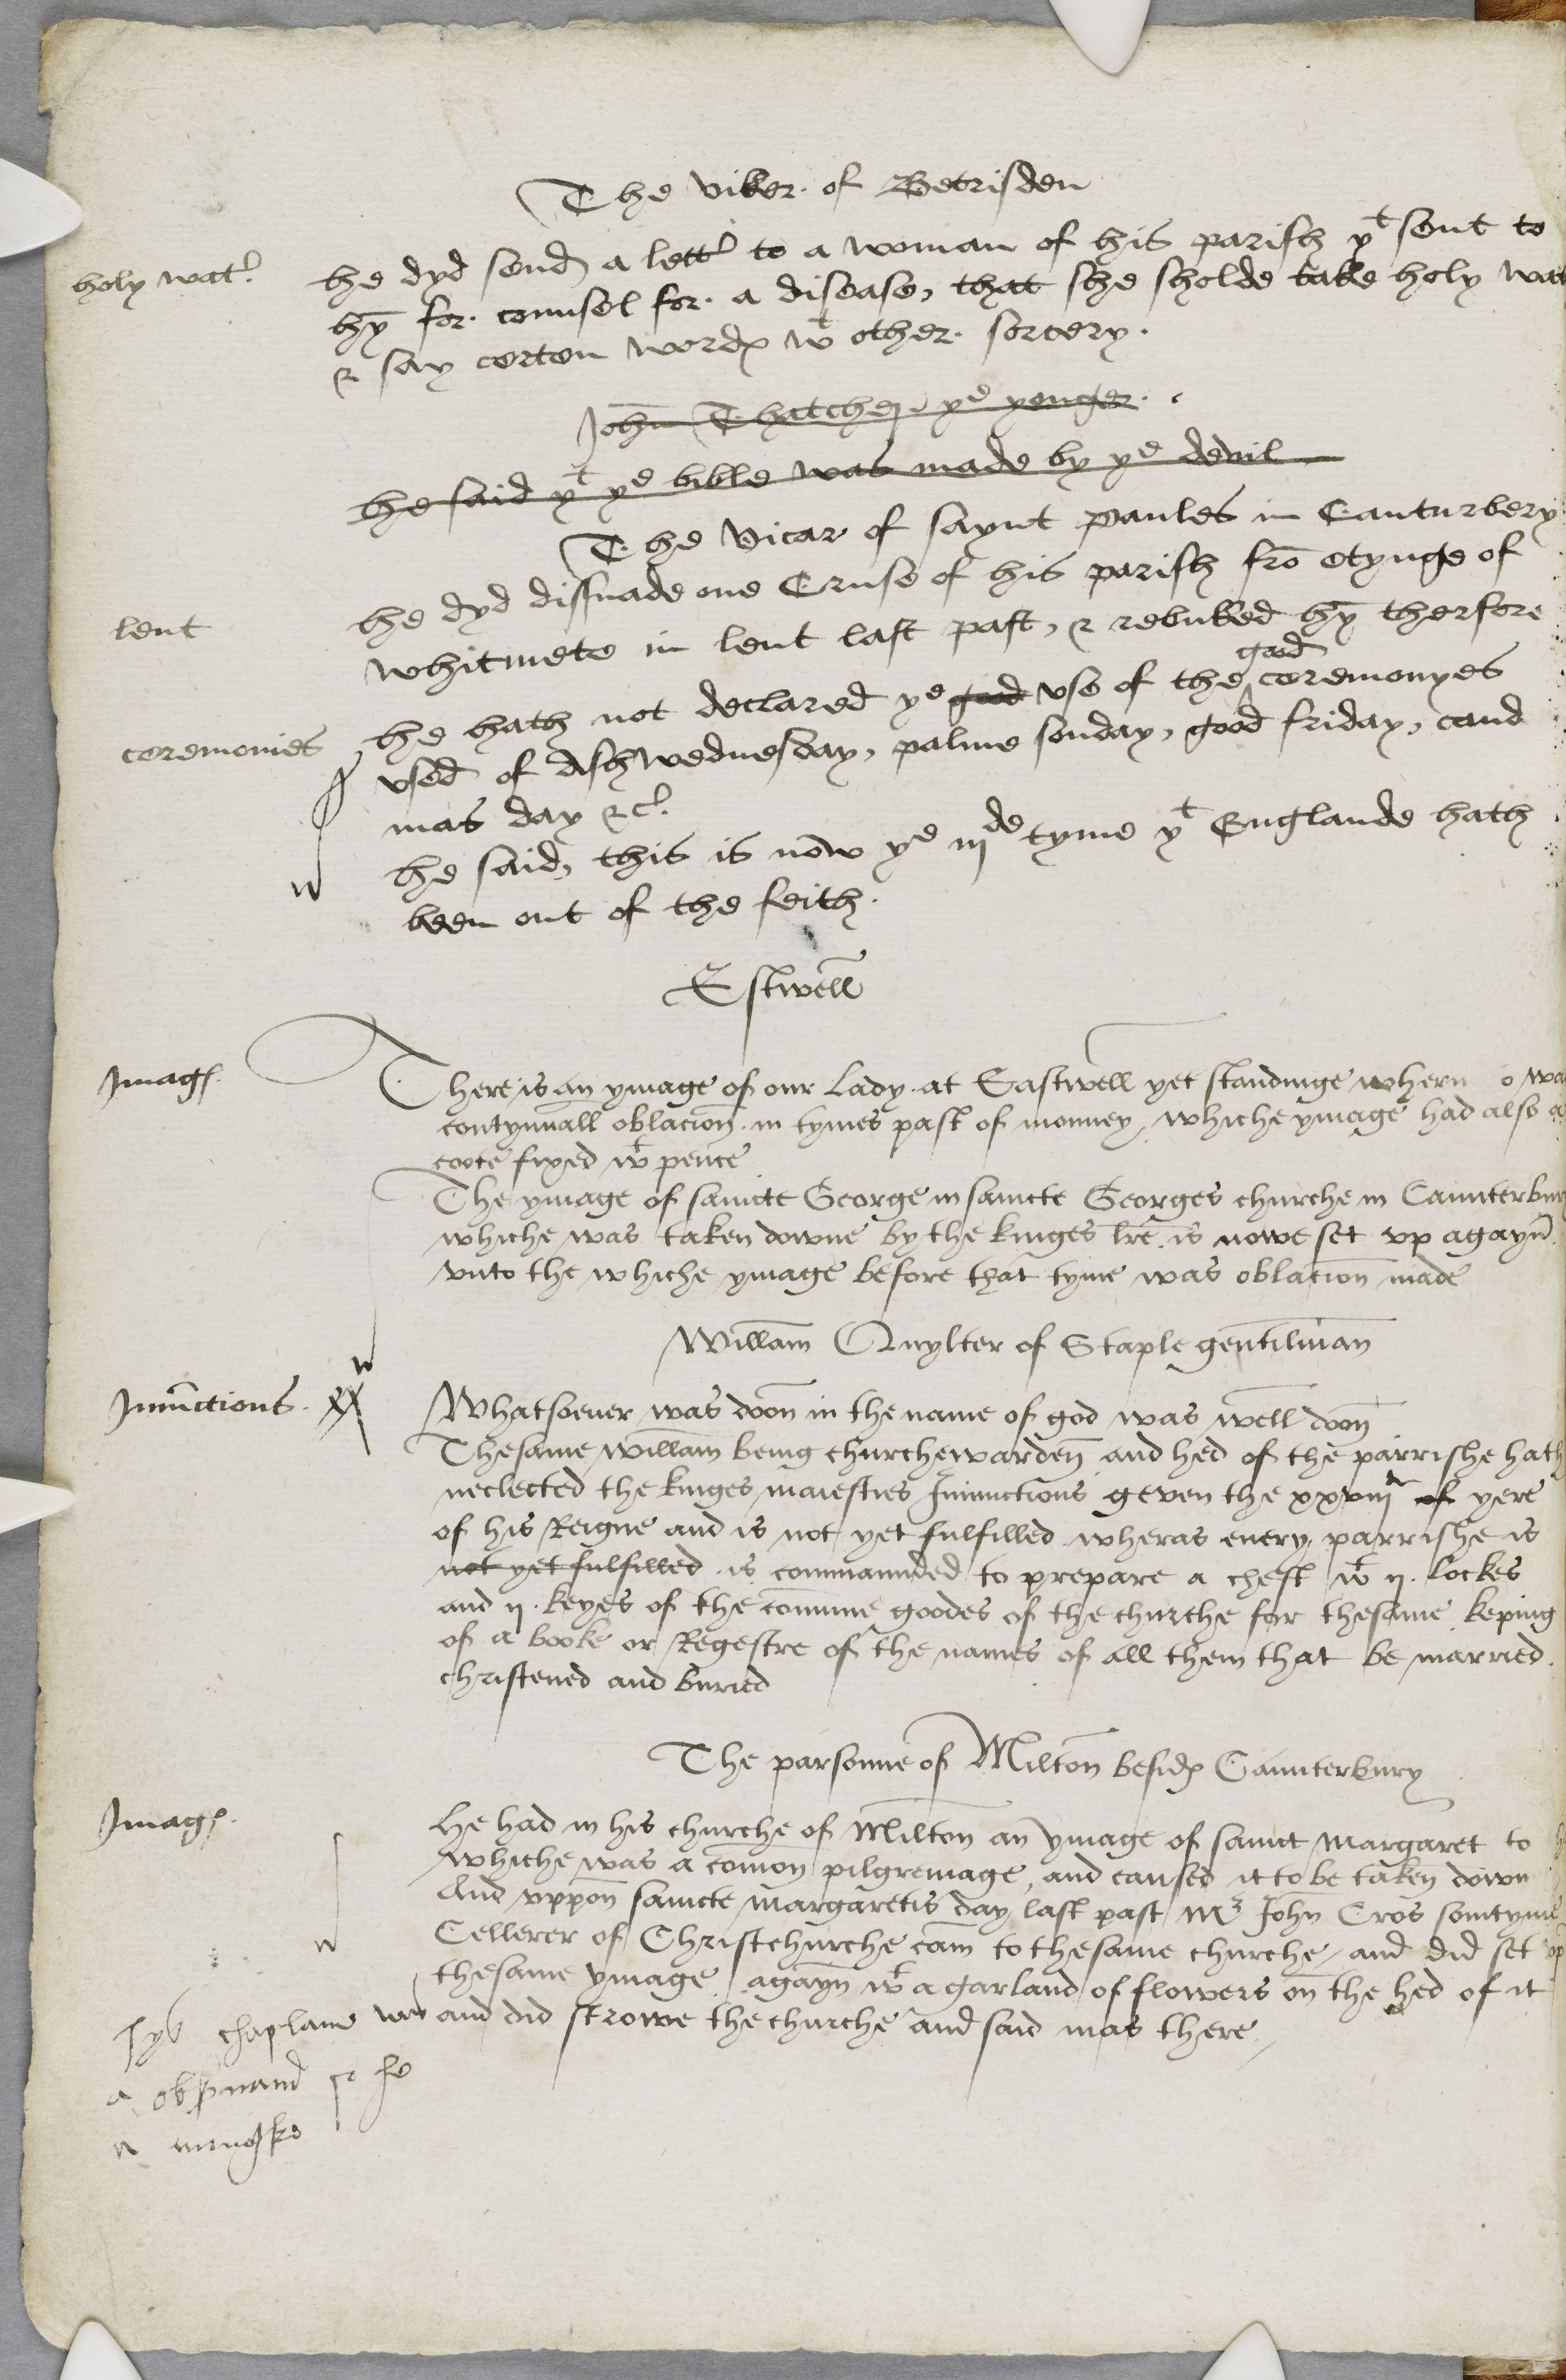 The viker of Betrisden
holy watr.
he dyd send a lettr to a woman of his parish yt sent to
hȳ for counsel for a disease, that she sholde take holy wat
& say certen words wt other sorcery.
John Thatcher ye yonger.
he said yt ye bible was made by ye devil
The Vicar of saynt Paules in Canturbery
lent
he dyd dissuade one Cruse of his parish frō etynge of
whitmete in lent last past, & rebuked hȳ therfore
good
ceremonies
he hath not declared ye good use of the ceremonyes
vsed of Ashwednesday, palme sonday, good friday, cand
mas day &c.
he said, this is now ye iijde tyme yt Englande hath
been out of the feith.
Estwell
Images.
There is an ymage of our Lady at Eastwell yet standinge wher
contynuall oblacion in tymes past of monney, whiche ymage had also a
coote fixed wt pence
The ymage of saincte George in saincte Georges churche in Caunterbury
whiche was taken downe by the kinges lre. is nowe set vp agayn.
vnto the whiche ymage before that tyme was oblacion made
Willam Quylter of Staple gentilman
Iniunctions.
Whatsoeuer was doon in the name of god was well doon
Thesame Willam being churchewarden and hed of the parrishe hath
neclected the kinges maiesties Iniunctions geven the xxviij of yere
of his Reigne and is not yet fulfilled wheras euery parrishe is
not yet fulfilled is commaunded to prepare a chest wt ij. lockes
and ij. keyes of the comune goodes of the churche for thesame keping
of a booke or Regestre of the names of all them that be married
christened and buried
The parsonne of Milton besids Caunterbury
Images.
He had in his churche of Milton an ymage of sainct Margaret to
whiche was a comon pilgremage, and caused it to be taken down
And vppon saincte Margaretis day last past Mr John Cros somtyme
Cellerer of Christchurche cam to thesame churche, and did set vp
thesame ymage agayn wt a garland of flowers on the hed of it
and did strowe the churche and said mas there
hys chaplane was
a obseruand & he
a mungke